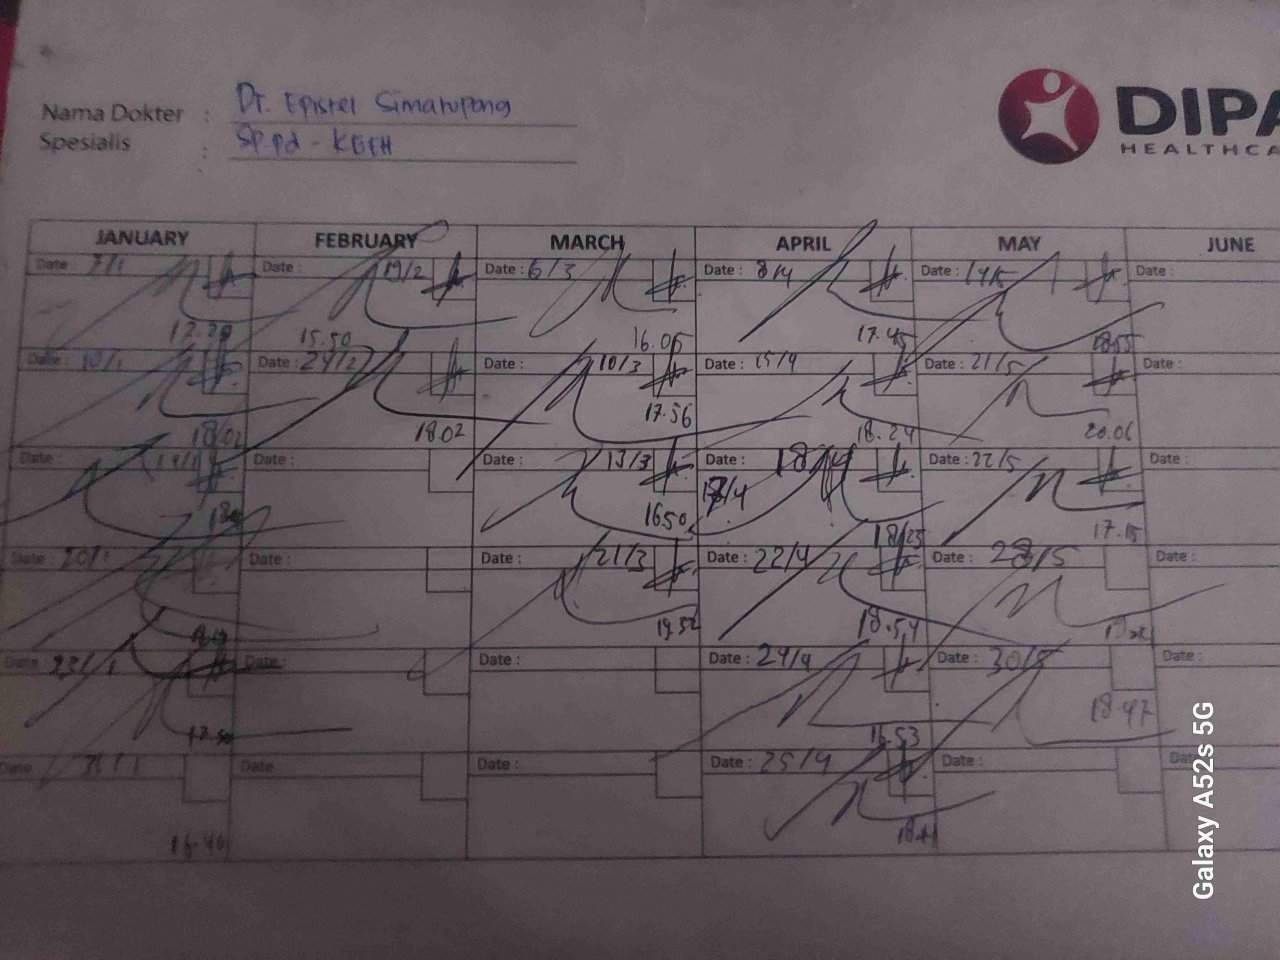 Nama Dokter : Dr. Epistel Simatupang
Spesialis : Sp.pd - KGEH
DIPA
HEALTHCA
JANUARY FEBRUARY MARCH APRIL MAY JUNE
Date 7/1 Date : 19/2 Date : 6/3 Date : 8/4 Date : 19/5 Date :
15.50 16.05 17.45 18.55
Date : 10/1 Date : 24/2 Date : 10/3 Date : 15/4 Date : 21/5 Date :
18.02 18.02 17.56 18.24 20.06
Date : Date : Date : 13/3 Date : 18/4 Date : 22/5 Date :
16.50 18.25 17.15
Date : 20/1 Date : Date : 21/3 Date : 22/4 Date : 28/5 Date :
19.52 18.54
Date : 23/1 Date : Date : Date : 24/4 Date : 30/5 Date :
16.53 18.47
Date : 31/1 Date Date : Date : 25/4 Date : Date
16.40
Galaxy A52s 5G